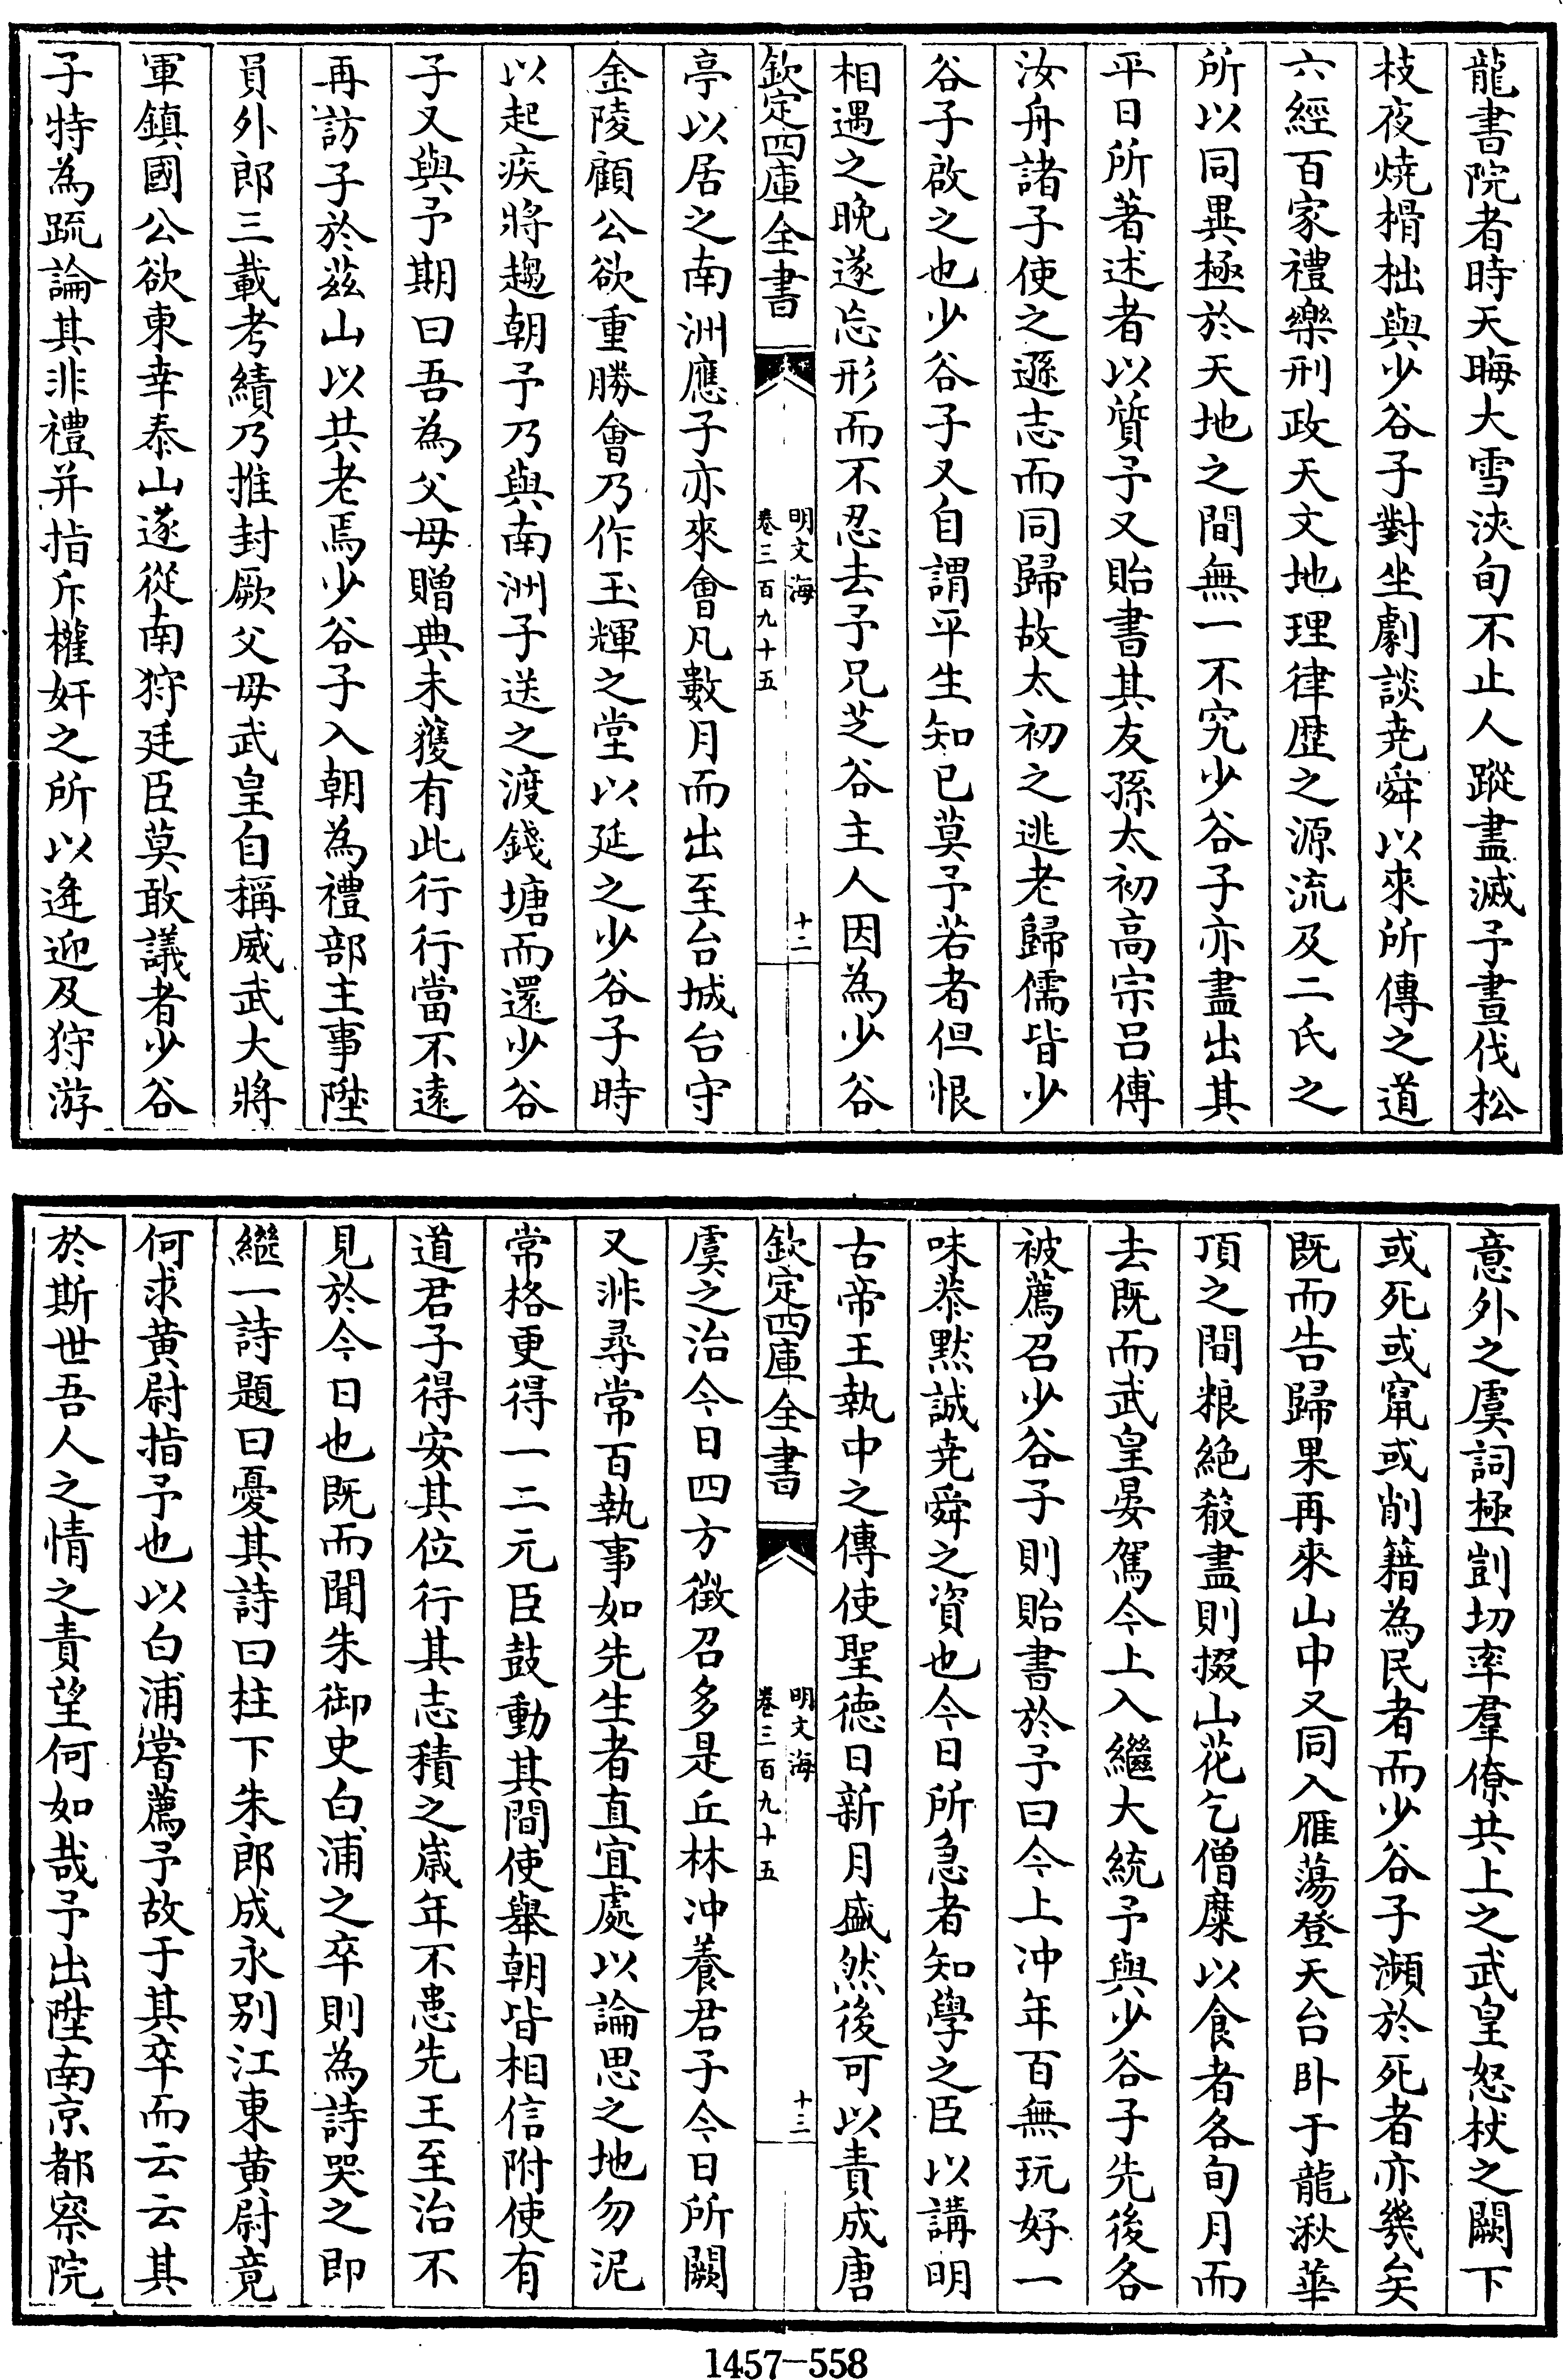 龍書院者時天晦大雪浹旬不止人蹤盡滅予晝伐松
枝夜燒榾柮與少谷子對坐劇談堯舜以來所傳之道
六經百家禮樂刑政天文地理律歴之源流及二氏之
所以同異極於天地之間無一不究少谷子亦盡出其
平日所著述者以質予又貽書其友孫太初高宗呂傅
汝舟諸子使之遜志而同歸故太初之逃老歸儒皆少
谷子啟之也少谷子又自謂平生知已莫予若者但恨
相遇之晚遂忘形而不忍去予兄芝谷主人因為少谷
欽定四庫全書
明文海
卷三百九十五
十二
亭以居之南洲應子亦來會凡數月而出至台城台守
金陵顧公欲重勝會乃作玉輝之堂以延之少谷子時
以起疾將趨朝予乃與南洲子送之渡錢塘而還少谷
子又與予期曰吾為父母贈典未獲有此行行當不遠
再訪子於茲山以共老焉少谷子入朝為禮部主事陞
員外郎三載考績乃推封厥父母武皇自稱威武大將
軍鎮國公欲東幸泰山遂從南狩廷臣莫敢議者少谷
子特為疏論其非禮并指斥權奸之所以逢迎及狩游
意外之虞詞極剴切率羣僚共上之武皇怒杖之闕下
或死或竄或削籍為民者而少谷子瀕於死者亦幾矣
既而告歸果再來山中又同入雁蕩登天台卧于龍湫華
頂之間粮絶殽盡則掇山花乞僧糜以食者各旬月而
去既而武皇晏駕今上入繼大統予與少谷子先後各
被薦召少谷子則貽書於予曰今上冲年百無玩好一
味恭默誠堯舜之資也今日所急者知學之臣以講明
古帝王執中之傳使聖德日新月盛然後可以責成唐
欽定四庫全書
明文海
卷三百九十五
十三
虞之治今日四方徴召多是丘林冲養君子今日所闕
又非尋常百執事如先生者直宜處以論思之地勿泥
常格更得一二元臣鼓動其間使舉朝皆相信附使有
道君子得安其位行其志積之嵗年不患先王至治不
見於今日也既而聞朱御史白浦之卒則為詩哭之即
繼一詩題曰憂其詩曰柱下朱郎成永别江東黄尉竟
何求黄尉指予也以白浦嘗薦予故于其卒而云云其
於斯世吾人之情之責望何如哉予出陞南京都察院
1457—558